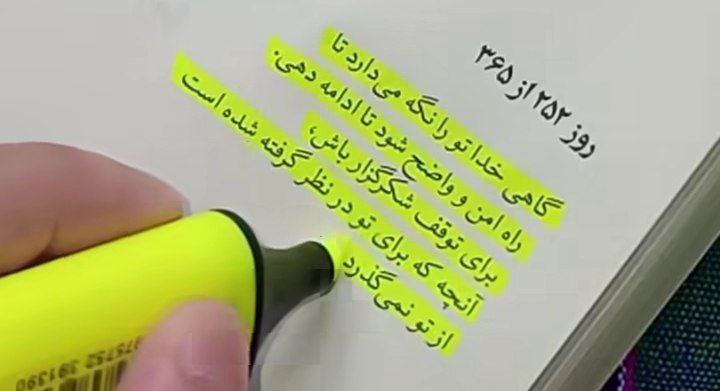 روز ۲۵۲ از ۳۶۵
گاهی خدا تو را نگه می‌دارد تا
راه امن و واضح شود تا ادامه دهی.
برای توقف شکرگزار باش،
آنچه که برای تو در نظر گرفته شده است
از تو نمی‌گذرد
975752 391390